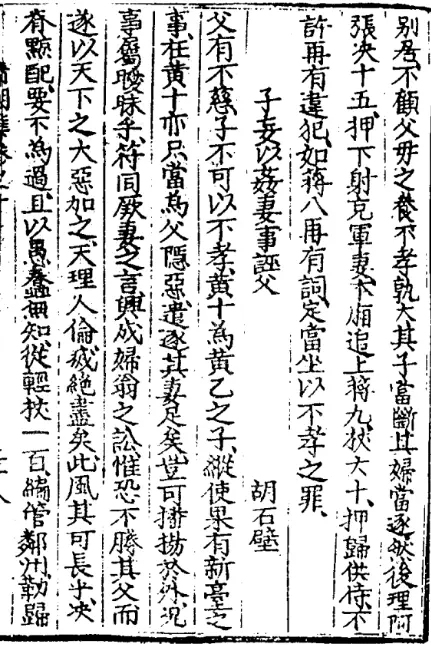 別居、不顧父母之養、不孝孰大、其子當斷、其婦當逐、然後理阿
張決十五、押下射充軍妻、下廂追上蔣九、杖六十、押歸供侍、不
許再有違犯、如蔣八再有詞、定當坐以不孝之罪、
子妄以姦妻事誣父 胡石壁
父有不慈、子不可以不孝、黃十為黃乙之子、縱使果有新臺之
事、在黃十亦只當為父隱惡、遣逐其妻足矣、豈可播揚於外、況
事屬曖昧乎、符同厥妻之言、興成婦翁之訟、惟恐不勝其父、而
遂以天下之大惡加之、天理人倫、滅絕盡矣、此風其可長乎、決
脊黥配、要不為過、且以愚蠢無知、從輕杖一百、編管鄰州、勒歸